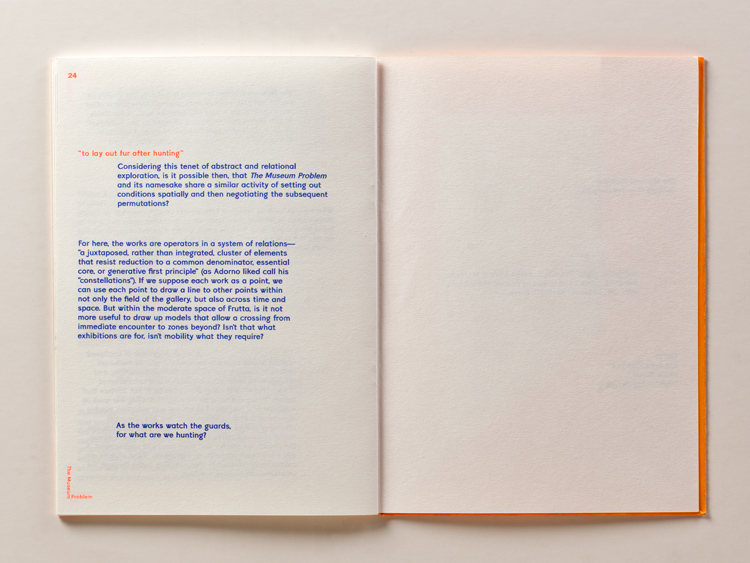 24
"to lay out fur after hunting"
Considering this tenet of abstract and relational
exploration, is it possible then, that The Museum Problem
and its namesake share a similar activity of setting out
conditions spatially and then negotiating the subsequent
permutations?
For here, the works are operators in a system of relations—
"a juxtaposed, rather than integrated, cluster of elements
that resist reduction to a common denominator, essential
core, or generative first principle" (as Adorno liked call his
"constellations"). If we suppose each work as a point, we
can use each point to draw a line to other points within
not only the field of the gallery, but also across time and
space. But within the moderate space of Frutta, is it not
more useful to draw up models that allow a crossing from
immediate encounter to zones beyond? Isn't that what
exhibitions are for, isn't mobility what they require?
As the works watch the guards,
for what are we hunting?
The Museum
Problem